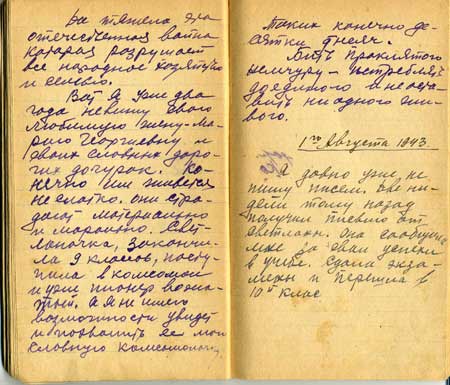 Да тяжела эта
отечественная война
которая разрушает
все народное хозяйство
и семью.
Вот я уже два
года не вижу свою
любимую жену-Ма-
рию Георгиевну и
своих славных доро-
гих дочурок. Ко-
нечно им живется
не сладко. Они стра-
дают материально
и морально. Свет-
ланочка, закончи-
ла 9 классов, посту-
пила в комсомол
и уже пионер вожа-
тый, а я не имею
возможности увидет
и поздравить ее мою
славную комсомолку
Таких конечно де-
сятки тысяч.
Бить проклятого
немчуру - истреблят
до единого и не оста-
вить ни одного жи-
вого.
1го Августа 1943.
Я давно уже не
пишу писем. Две не-
дели тому назад
получил письмо от
Светланы. Она сообщила
мне за свои успехи
в учебе. Сдала экза-
мены и перешла в
10й клас